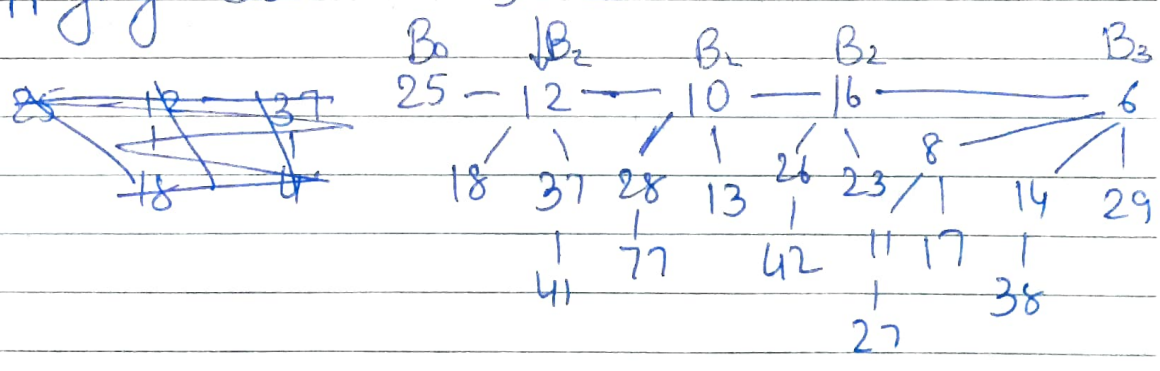 B₀ ↓B₂ B₂ B₂ B₃
25 — 12 — 10 — 16 — 6
8
18 37 28 13 26 23 14 29
41 77 42 11 17 38
27